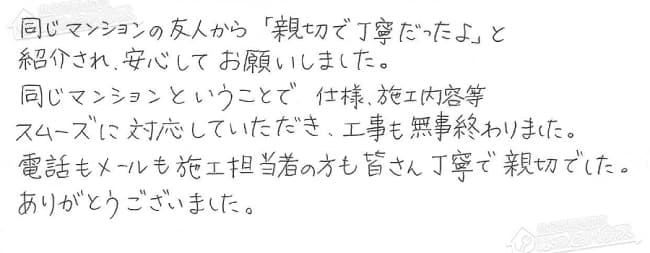 同じマンションの友人から「親切で丁寧だったよ」と
紹介され、安心してお願いしました。
同じマンションということで 仕様、施工内容等
スムーズに対応していただき、工事も無事終わりました。
電話もメールも施工担当者の方も皆さん丁寧で親切でした。
ありがとうございました。